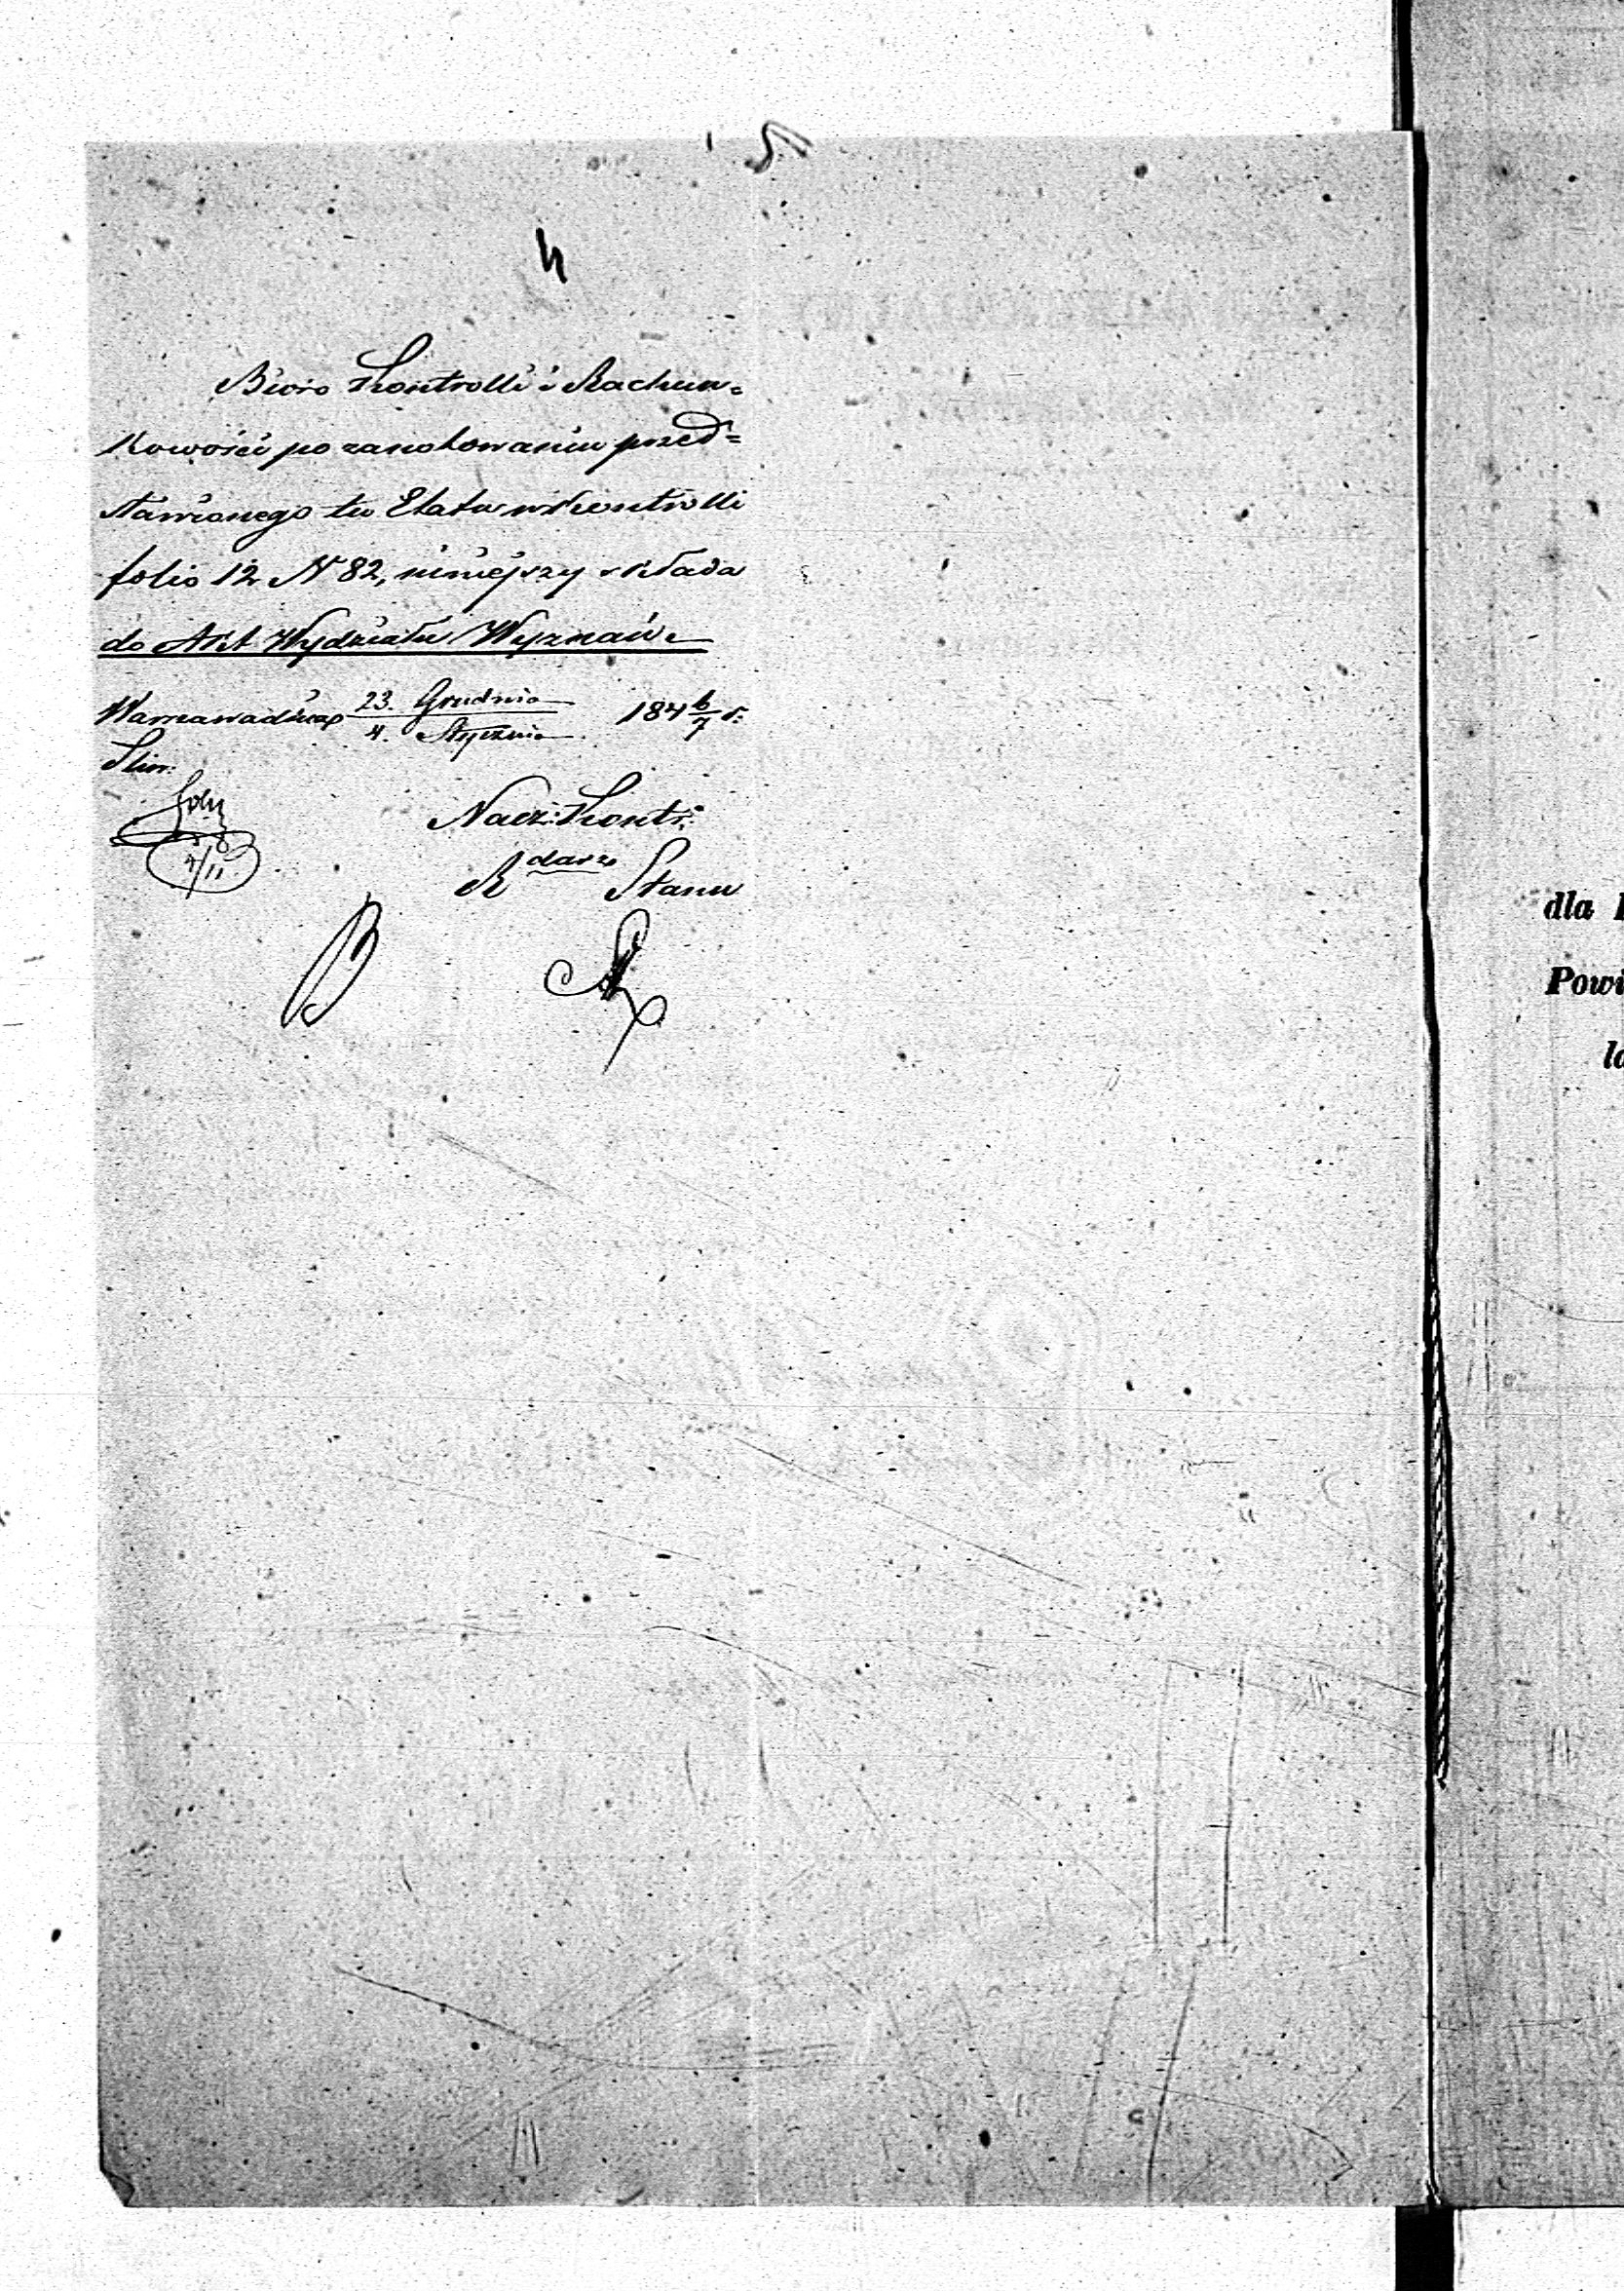 4
Biuro Kontrolli i Rachun=
kowości po zanotowaniu przed=
stawionego tu Etatu w Kontrolli
folio 12 N 82, niniejszy składa
do Akt Wydziału Wyznań.
Warszawa dnia 23. Grudnia / 4. Stycznia 184 6/7 r.
Nacz: Kontr:
R darz Stanu
dla
Powi